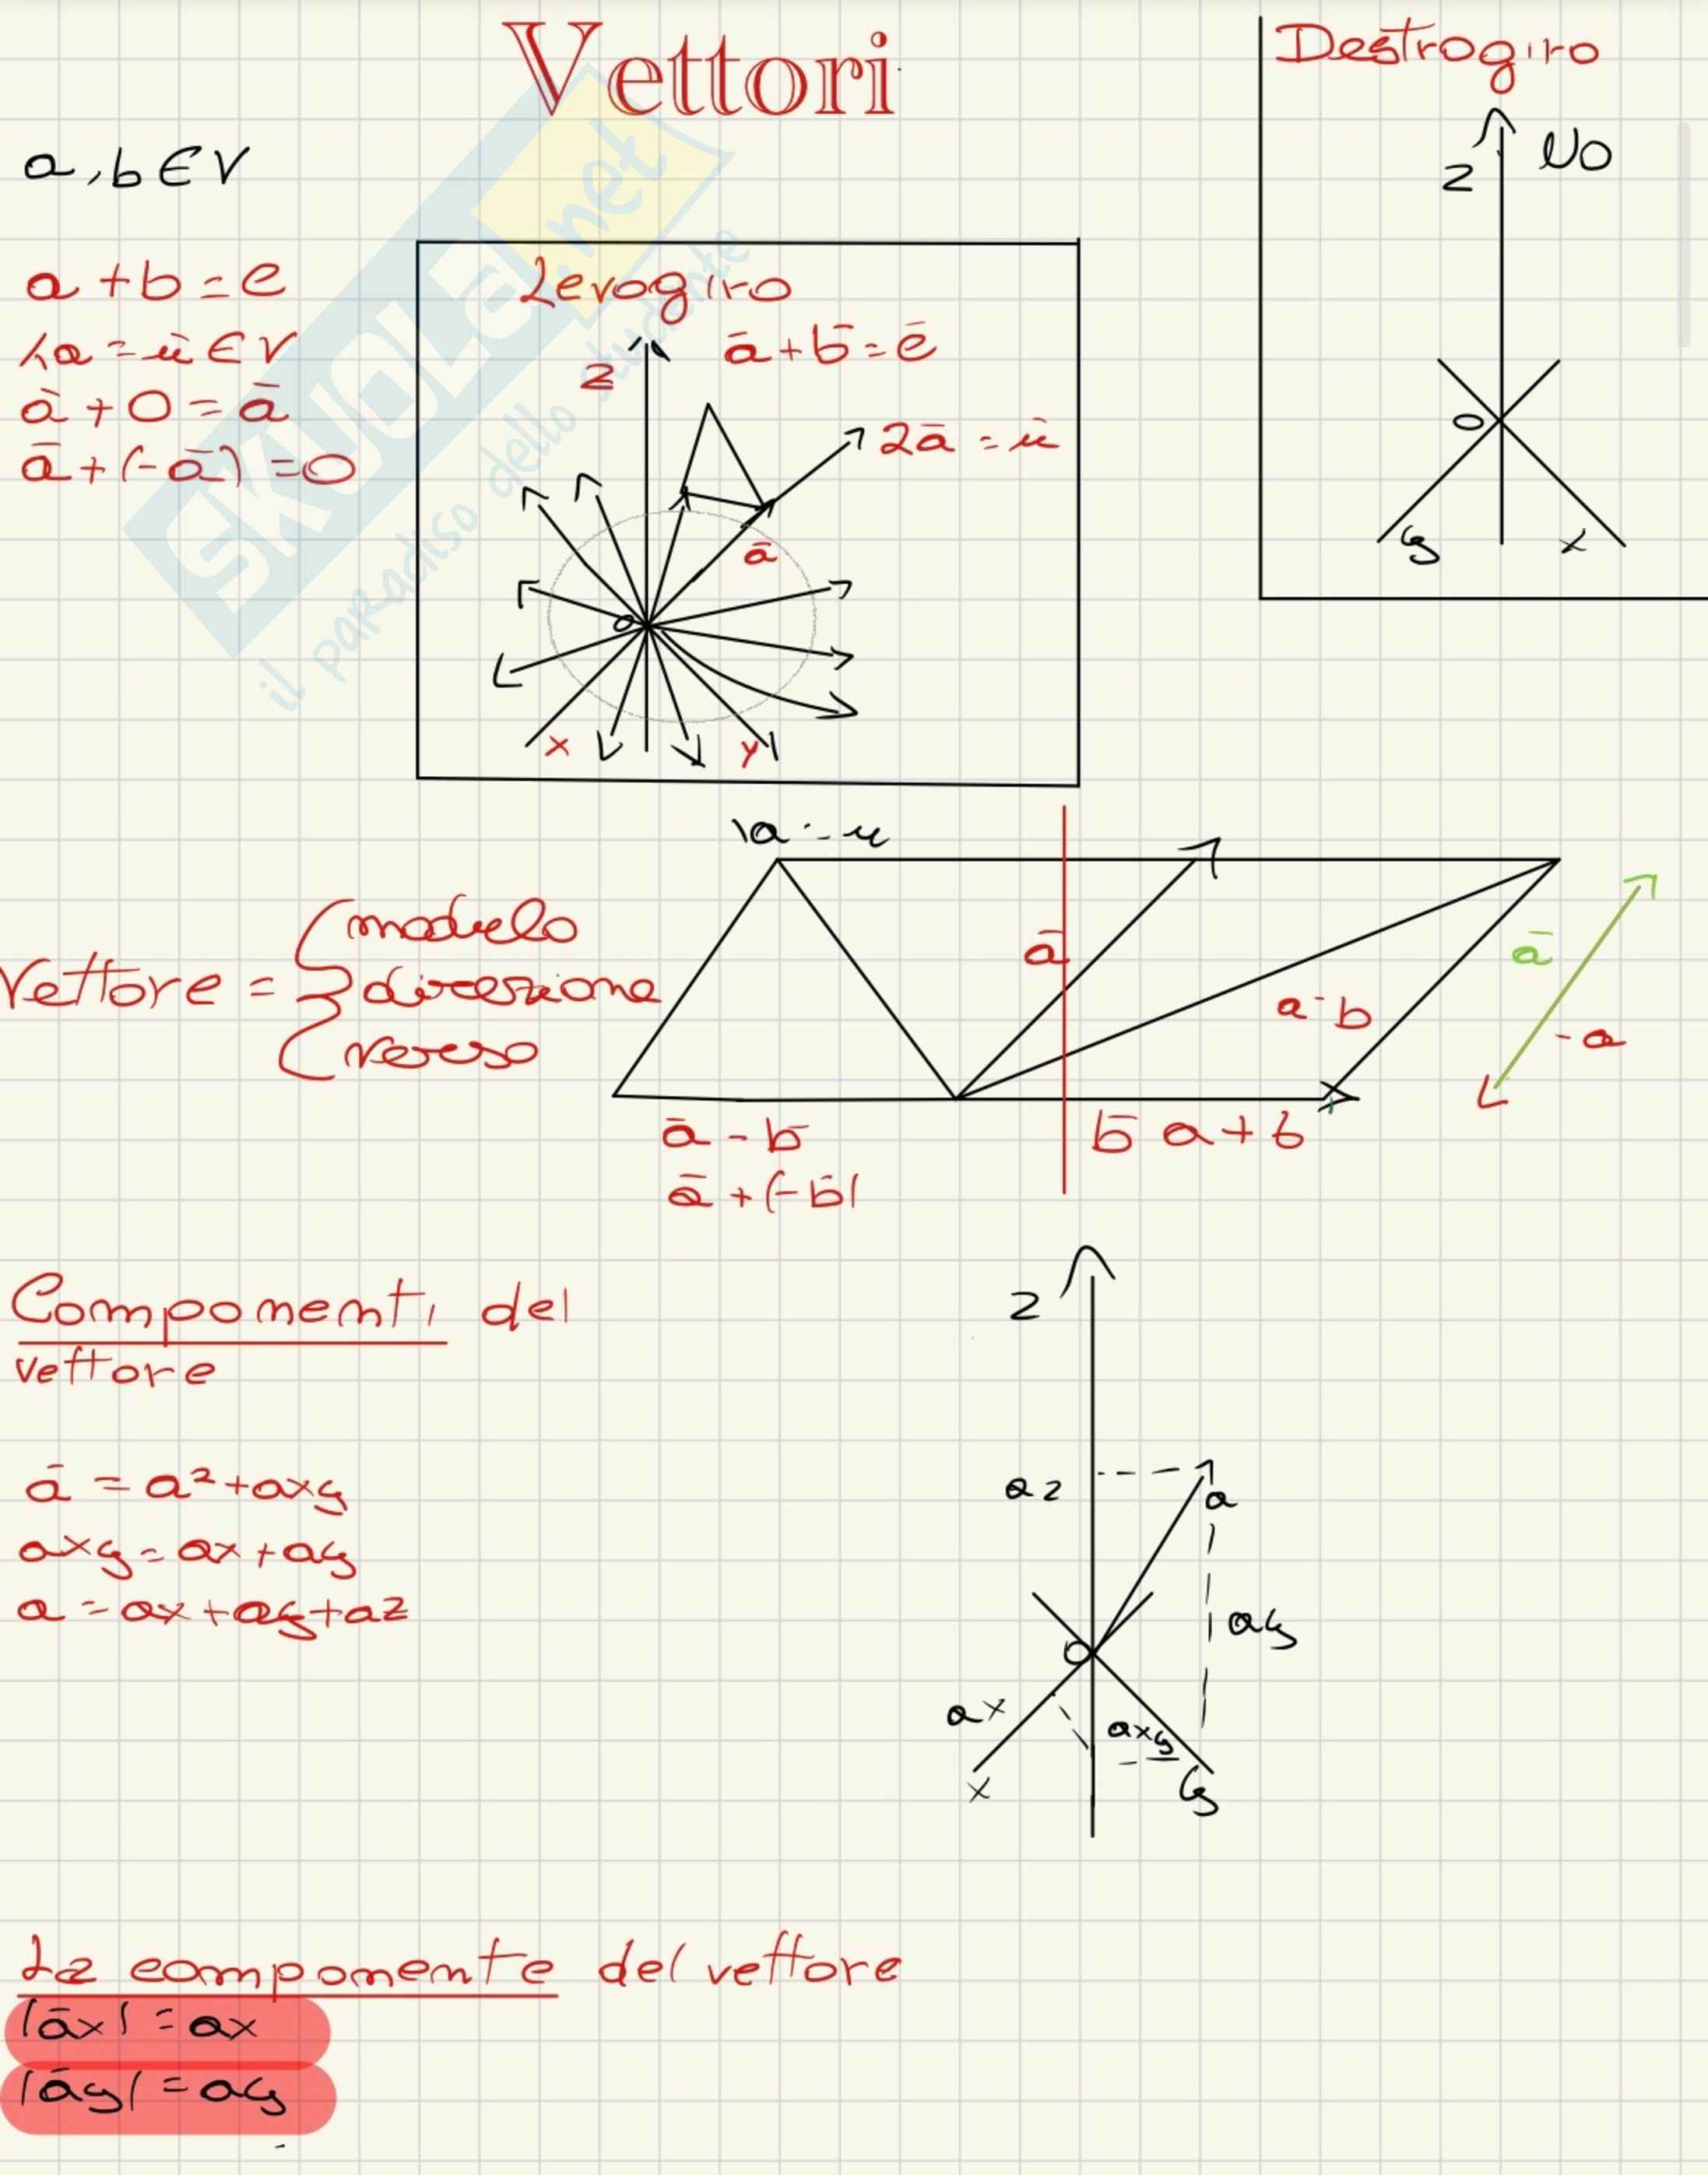 Vettori
Destrogiro
z NO
O
y x
a, b ∈ V
a + b = e
λa = ū ∈ V
ā + 0 = ā
ā + (-ā) = 0
Levogiro
ā + b̄ = ē
z
2ā = ū
ā
O
x y
λa = u
Vettore = { modulo
direzione
verso
ā
a - b
ā
- a
ā - b̄
ā + (-b̄)
b̄ a + b
Componenti del
vettore
z
ā = az + axy
axy = ax + ay
a = ax + ay + az
az
a
O
ay
ax
axy
x
y
La componente del vettore
|āx| = ax
|āy| = ay
SKUOLA.net
il paradiso dello studente